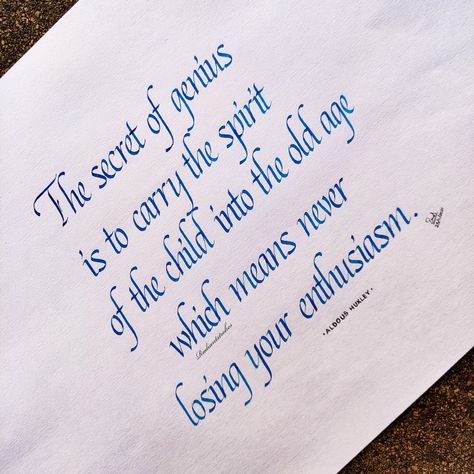 The secret of genius
is to carry the spirit
of the child into the old age
which means never
losing your enthusiasm.
· ALDOUS HUXLEY ·